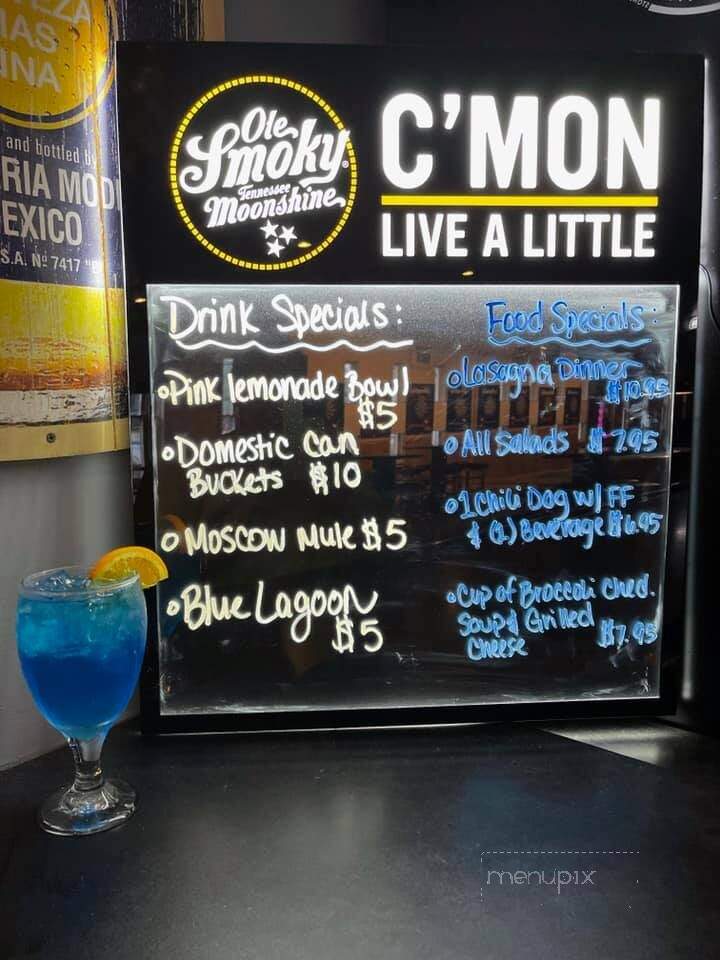 and bottled b
RIA MOD
EXICO
S.A. Nº 7417
Ole
Smoky
Tennessee
Moonshine
C'MON
LIVE A LITTLE
Drink Specials:
Pink lemonade Bowl
$5
Domestic Can
Buckets $10
Moscow Mule $5
Blue Lagoon
$5
Food Specials:
Lasagna Dinner
$10.95
All Salads $7.95
1 Chili Dog w/ FF
& (1) Beverage $6.95
Cup of Broccoli Ched.
Soup & Grilled
Cheese $7.95
menupix